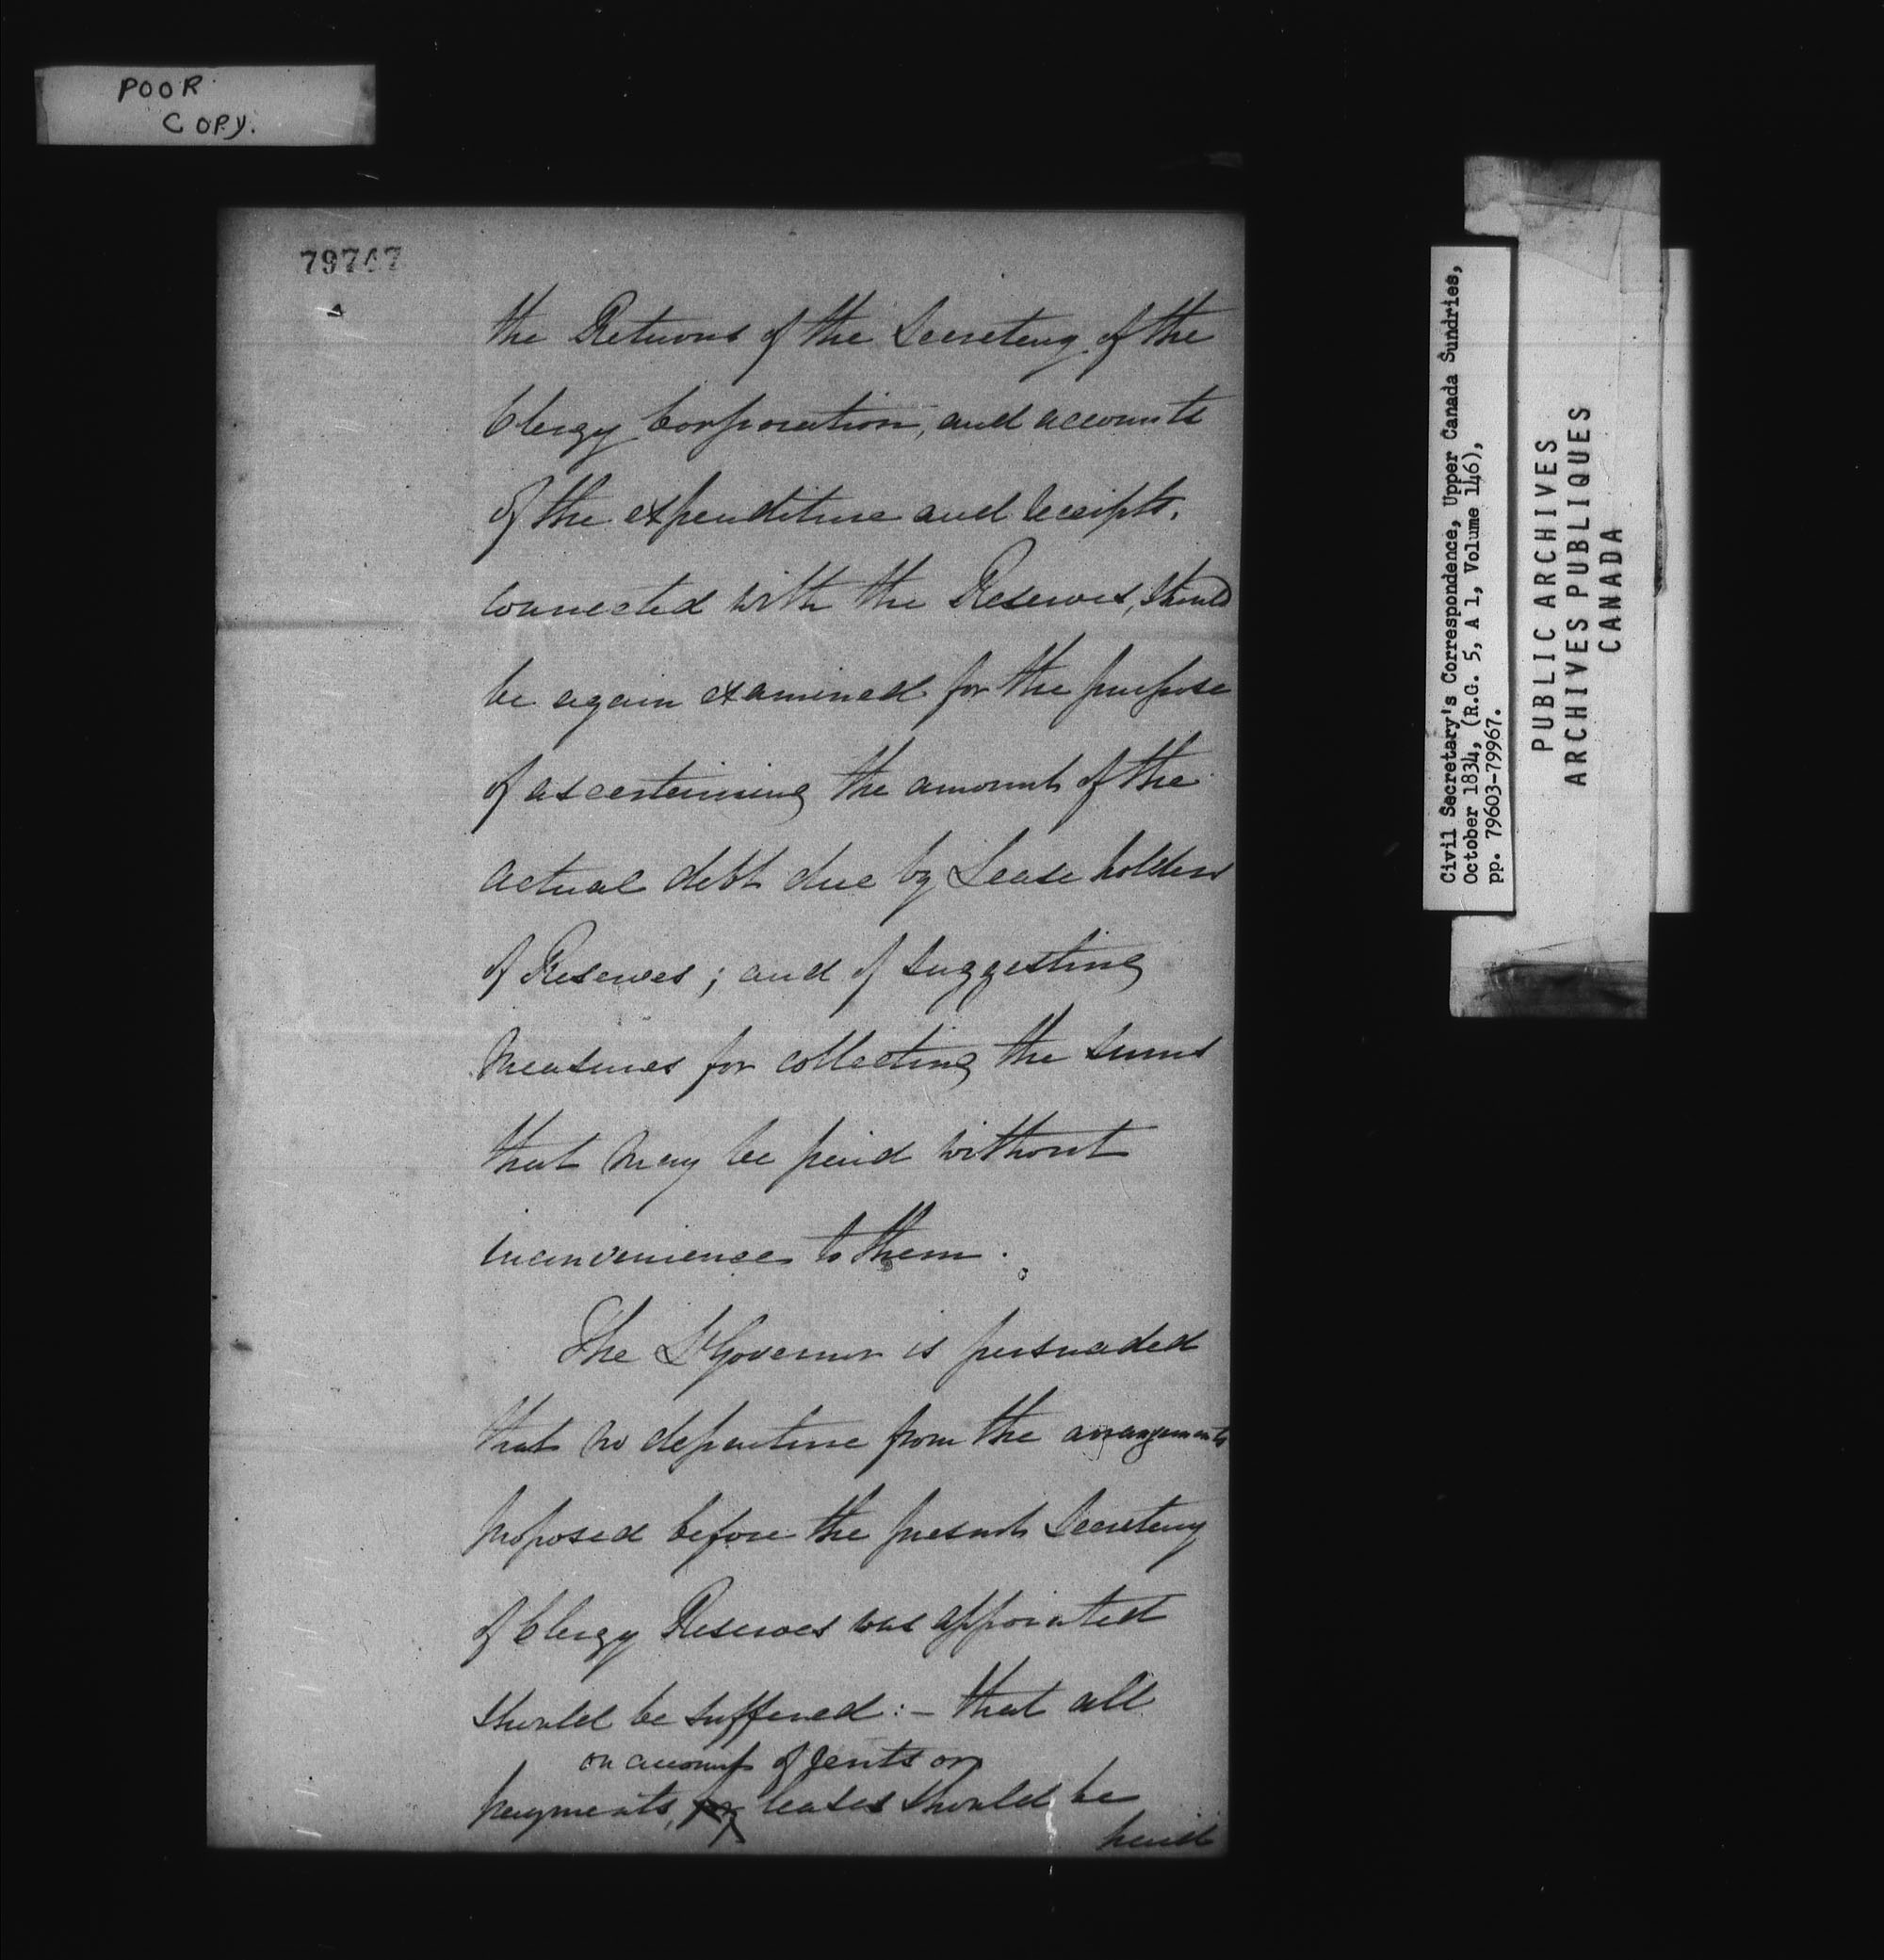 POOR
COPY.
79747
the Returns of the Secretary of the
Clergy Corporation, and accounts
of the expenditure and receipts,
connected with the Reserves, should
be again examined for the purpose
of ascertaining the amount of the
actual debt due by Lease holders
of Reserves; and of suggesting
measures for collecting the sums
that may be paid without
inconvenience to them.
The Lt Governor is persuaded
that no departure from the arrangements
proposed before the present Secretary
of Clergy Reserves was appointed
should be suffered:- that all
on account of rents on
payments, for leases should be
paid
Civil Secretary's Correspondence, Upper Canada Sundries,
October 1834, (R.G. 5, A 1, Volume 146),
pp. 79603-79967.
PUBLIC ARCHIVES
ARCHIVES PUBLIQUES
CANADA